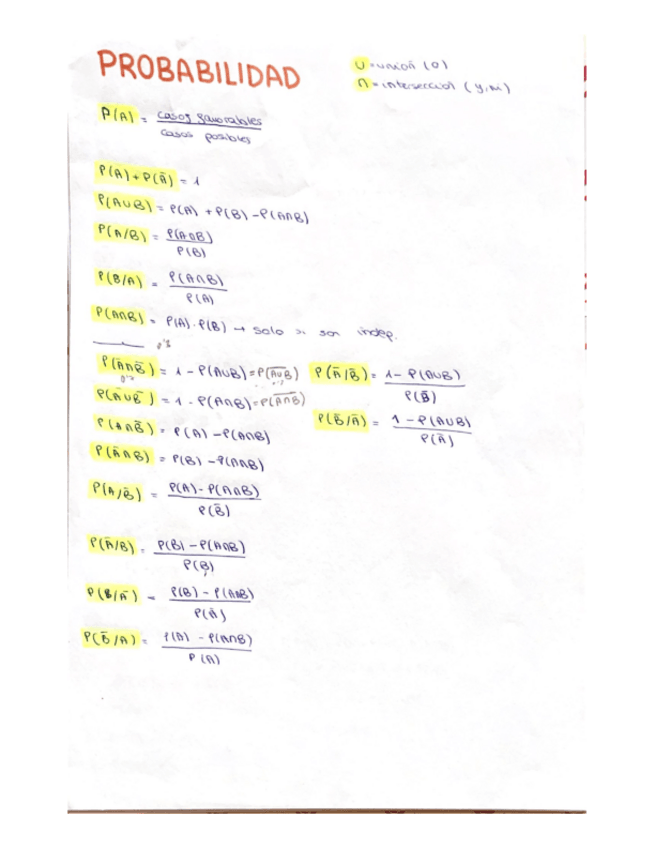 PROBABILIDAD
U = unión (o)
∩ = intersección (y, ni)
P(A) = casos favorables / casos posibles
P(A) + P(Ā) = 1
P(A∪B) = P(A) + P(B) - P(A∩B)
P(A/B) = P(A∩B) / P(B)
P(B/A) = P(A∩B) / P(A)
P(A∩B) = P(A) · P(B) → solo si son indep.
P(Ā∩B̄) = 1 - P(A∪B) = P(A∪B)̅
P(Ā∪B̄) = 1 - P(A∩B) = P(A∩B)̅
P(A∩B̄) = P(A) - P(A∩B)
P(Ā∩B) = P(B) - P(A∩B)
P(A/B̄) = P(A) - P(A∩B) / P(B̄)
P(Ā/B) = P(B) - P(A∩B) / P(B)
P(B/Ā) = P(B) - P(A∩B) / P(Ā)
P(B̄/A) = P(A) - P(A∩B) / P(A)
P(Ā/B̄) = 1 - P(A∪B) / P(B̄)
P(B̄/Ā) = 1 - P(A∪B) / P(Ā)